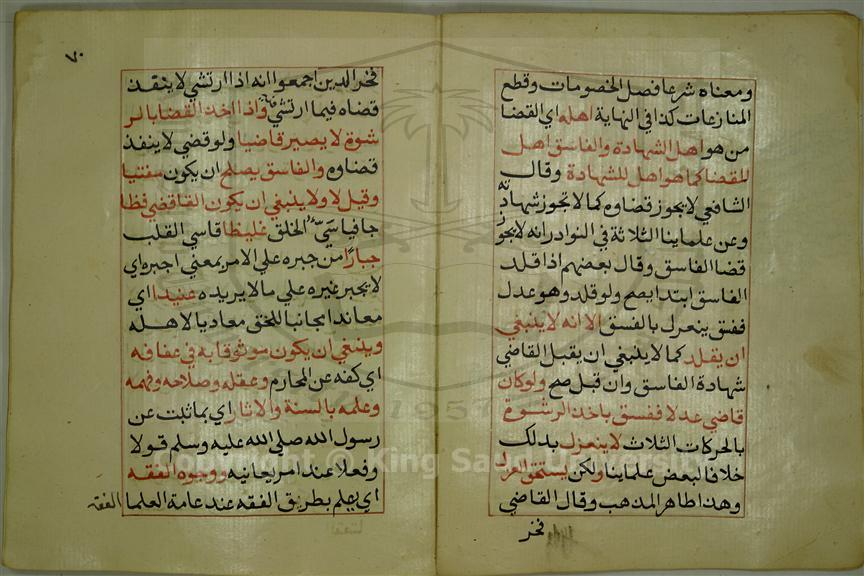 ومعناه شرعا فصل الخصومات وقطع
المنازعات كذا في النهاية اهله اي القضا
من هو اهل الشهادة والفاسق اهل
للقضا كما هو اهل للشهادة وقال
الشافعي لا يجوز قضاوه كما لا تجوز شهادته
وعن علماينا الثلاثة في النوادر انه لا يجوز
قضا الفاسق وقال بعضهم اذا قلد
الفاسق ابتدا يصح ولو قلد وهو عدل
ففسق ينعزل بالفسق الا انه لا ينبغي
ان يقلد كما لا ينبغي ان يقبل القاضي
شهادة الفاسق وان قبل صح ولو كان
قاضي عدلا ففسق باخذ الرشوة
بالحركات الثلاث لا ينعزل بذلك
خلافا لبعض علماينا ولكن يستحق العزل
وهذا ظاهر المذهب وقال القاضي
فخر
٧٠
فخر الدين اجمعوا انه اذا ارتشي لا ينفذ
قضاه فيما ارتشي واذا اخذ القضا بالر
شوة لا يصير قاضيا ولو قضي لا ينفذ
قضاوه والفاسق يصلح ان يكون مفتيا
وقيل لا ولا ينبغي ان يكون القاضي فظا
جافيا سيء الخلق غليظا قاسي القلب
جبارا من جبره علي الامر بمعني اجبره اي
لا يجبر غيره علي ما لا يريده عنيدا اي
معاندا مجانبا للحق معاديا لاهله
وينبغي ان يكون موثوقا به في عفافه
اي كفه عن المحارم وعقله وصلاحه وفهمه
وعلمه بالسنة والاثار اي بما ثبت عن
رسول الله صلي الله عليه وسلم قولا
وفعلا عند امر يعانيه ووجوه الفقه
اي يعلم بطريق الفقه عند عامة العلما
الفقه
1957
Copyright © King Saud University